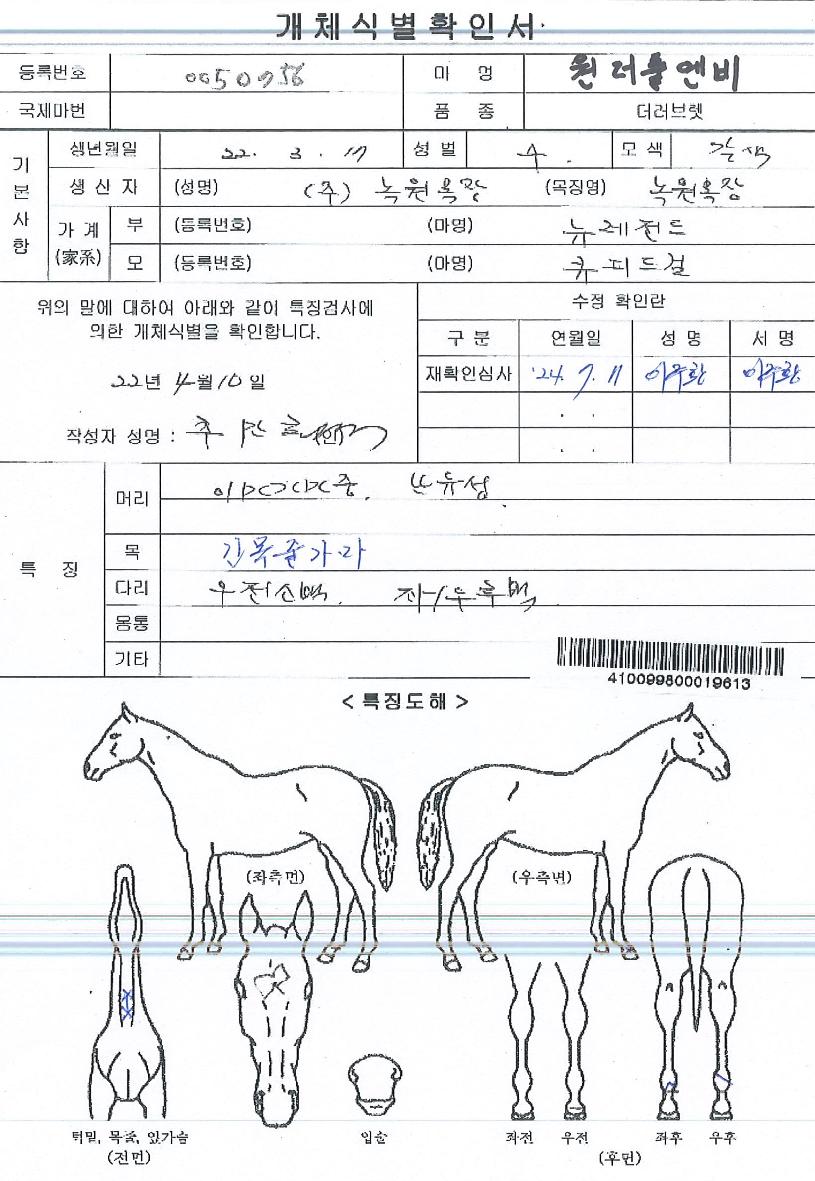 개체식별확인서
등록번호 0050756 마 명 원더풀엔비
국제마번 품 종 더러브렛
기본사항
생년월일 22. 3. 17 성 별 수. 모 색 갈색
생 산 자 (성명) (주) 녹원목장 (목장명) 녹원목장
가 계 (家系) 부 (등록번호) (마명) 뉴레전드
모 (등록번호) (마명) 큐피드걸
위의 말에 대하여 아래와 같이 특징검사에
의한 개체식별을 확인합니다.
22년 4월 10일
작성자 성명 :
수정 확인란
구 분 연월일 성 명 서 명
재확인심사 '24. 7. 11
. .
. .
특 징
머리 유성
목 긴목줄가마
다리 우전소백. 좌/우후백
몸통
기타
410099800019613
< 특징도해 >
(좌측면) (우측면)
턱밑, 목줄, 앞가슴
(전면)
입술
좌전 우전 좌후 우후
(후면)